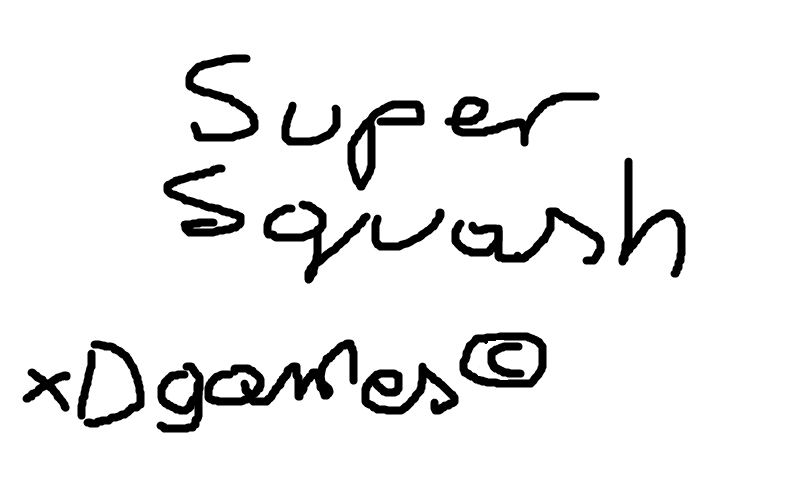 Super
Squash
xDgames©